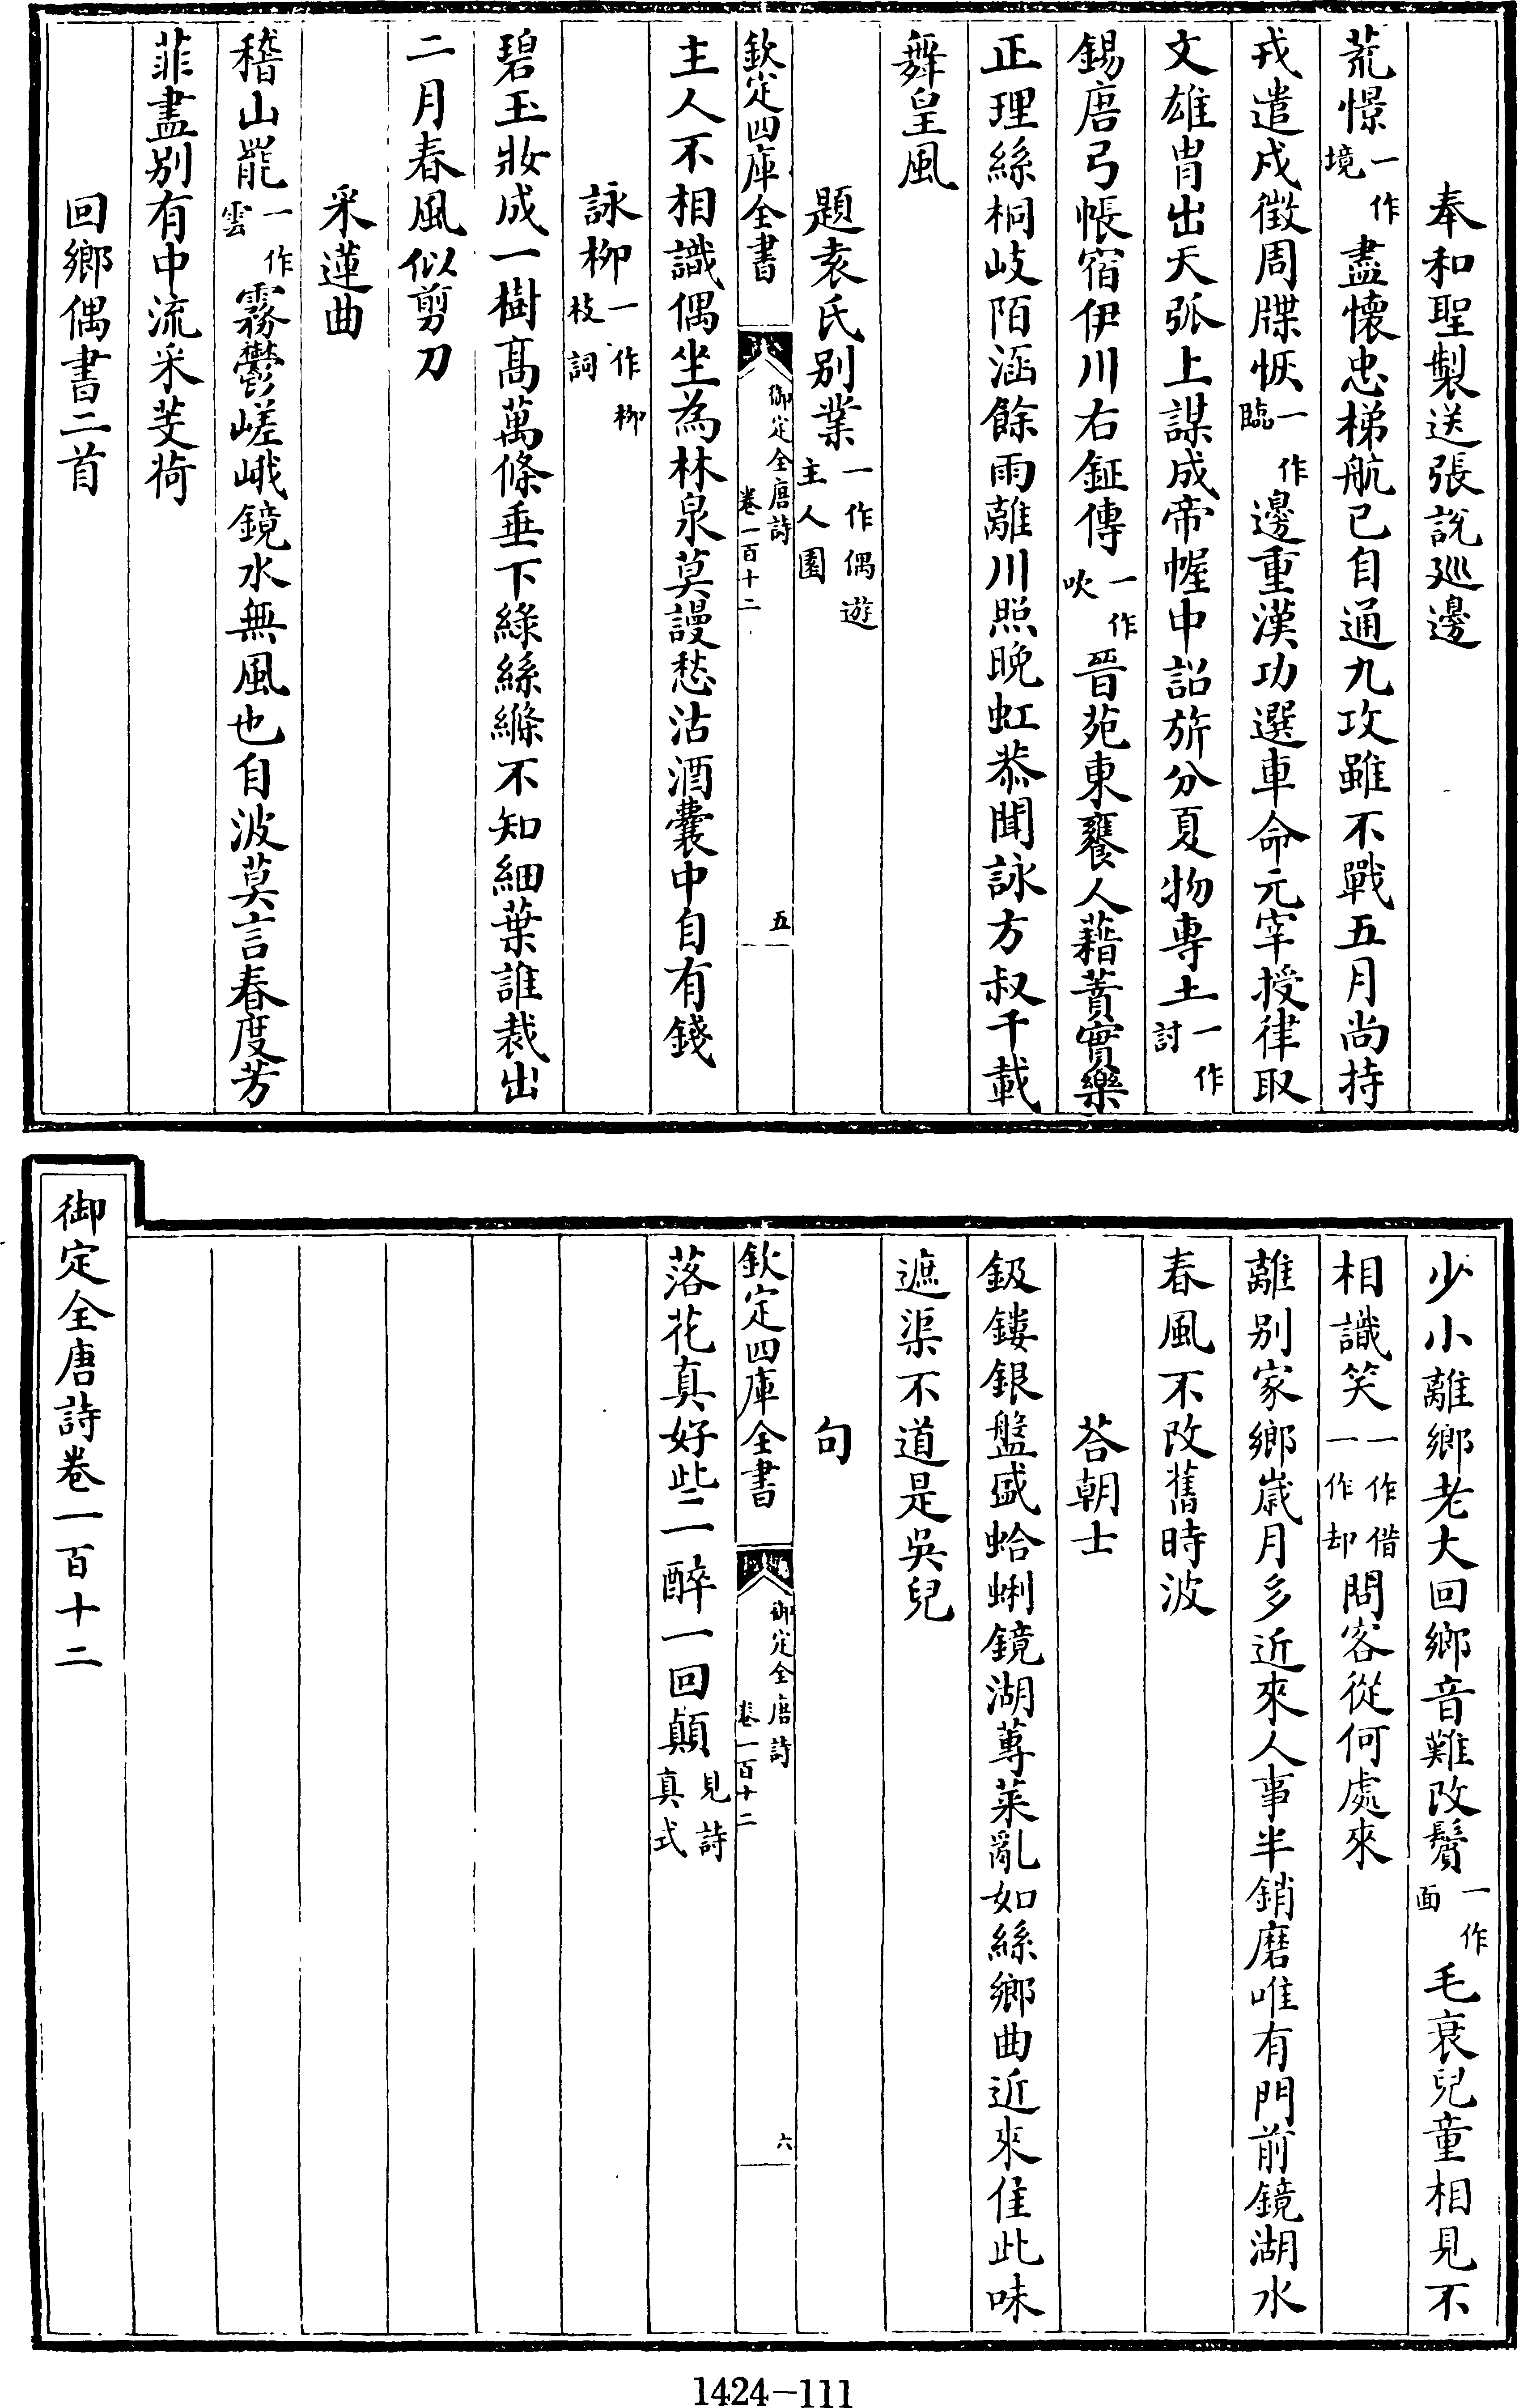 奉和聖製送張說廵邊
荒憬一作境盡懷忠梯航已自通九攻雖不戰五月尚持
戎遣戍徵周牒恢一作臨邊重漢功選車命元宰授律取
文雄胄出天弧上謀成帝幄中詔旂分夏物専土一作討
錫唐弓帳宿伊川右鉦傳一作吹晉苑東饔人藉蕢實樂
正理絲桐岐陌涵餘雨離川照晚虹恭聞詠方叔千載
舞皇風
題袁氏别業一作偶遊主人園
欽定四庫全書
御定全唐詩
卷一百十二
五
主人不相識偶坐為林泉莫謾愁沽酒囊中自有錢
詠柳一作柳枝詞
碧玉妝成一樹髙萬條垂下綠絲縧不知細葉誰裁出
二月春風似剪刀
采蓮曲
稽山罷一作雲霧鬱嵯峨鏡水無風也自波莫言春度芳
菲盡别有中流采芰荷
回鄉偶書二首
少小離鄉老大回鄉音難改鬢一作面毛衰兒童相見不
相識笑一作借一作却問客從何處來
離别家鄉嵗月多近來人事半銷磨唯有門前鏡湖水
春風不改舊時波
荅朝士
鈒鏤銀盤盛蛤蜊鏡湖蓴菜亂如絲鄉曲近來佳此味
遮渠不道是吳兒
句
欽定四庫全書
御定全唐詩
卷一百十二
六
落花真好些二一醉一回顛見詩真式
御定全唐詩卷一百十二
1424-111